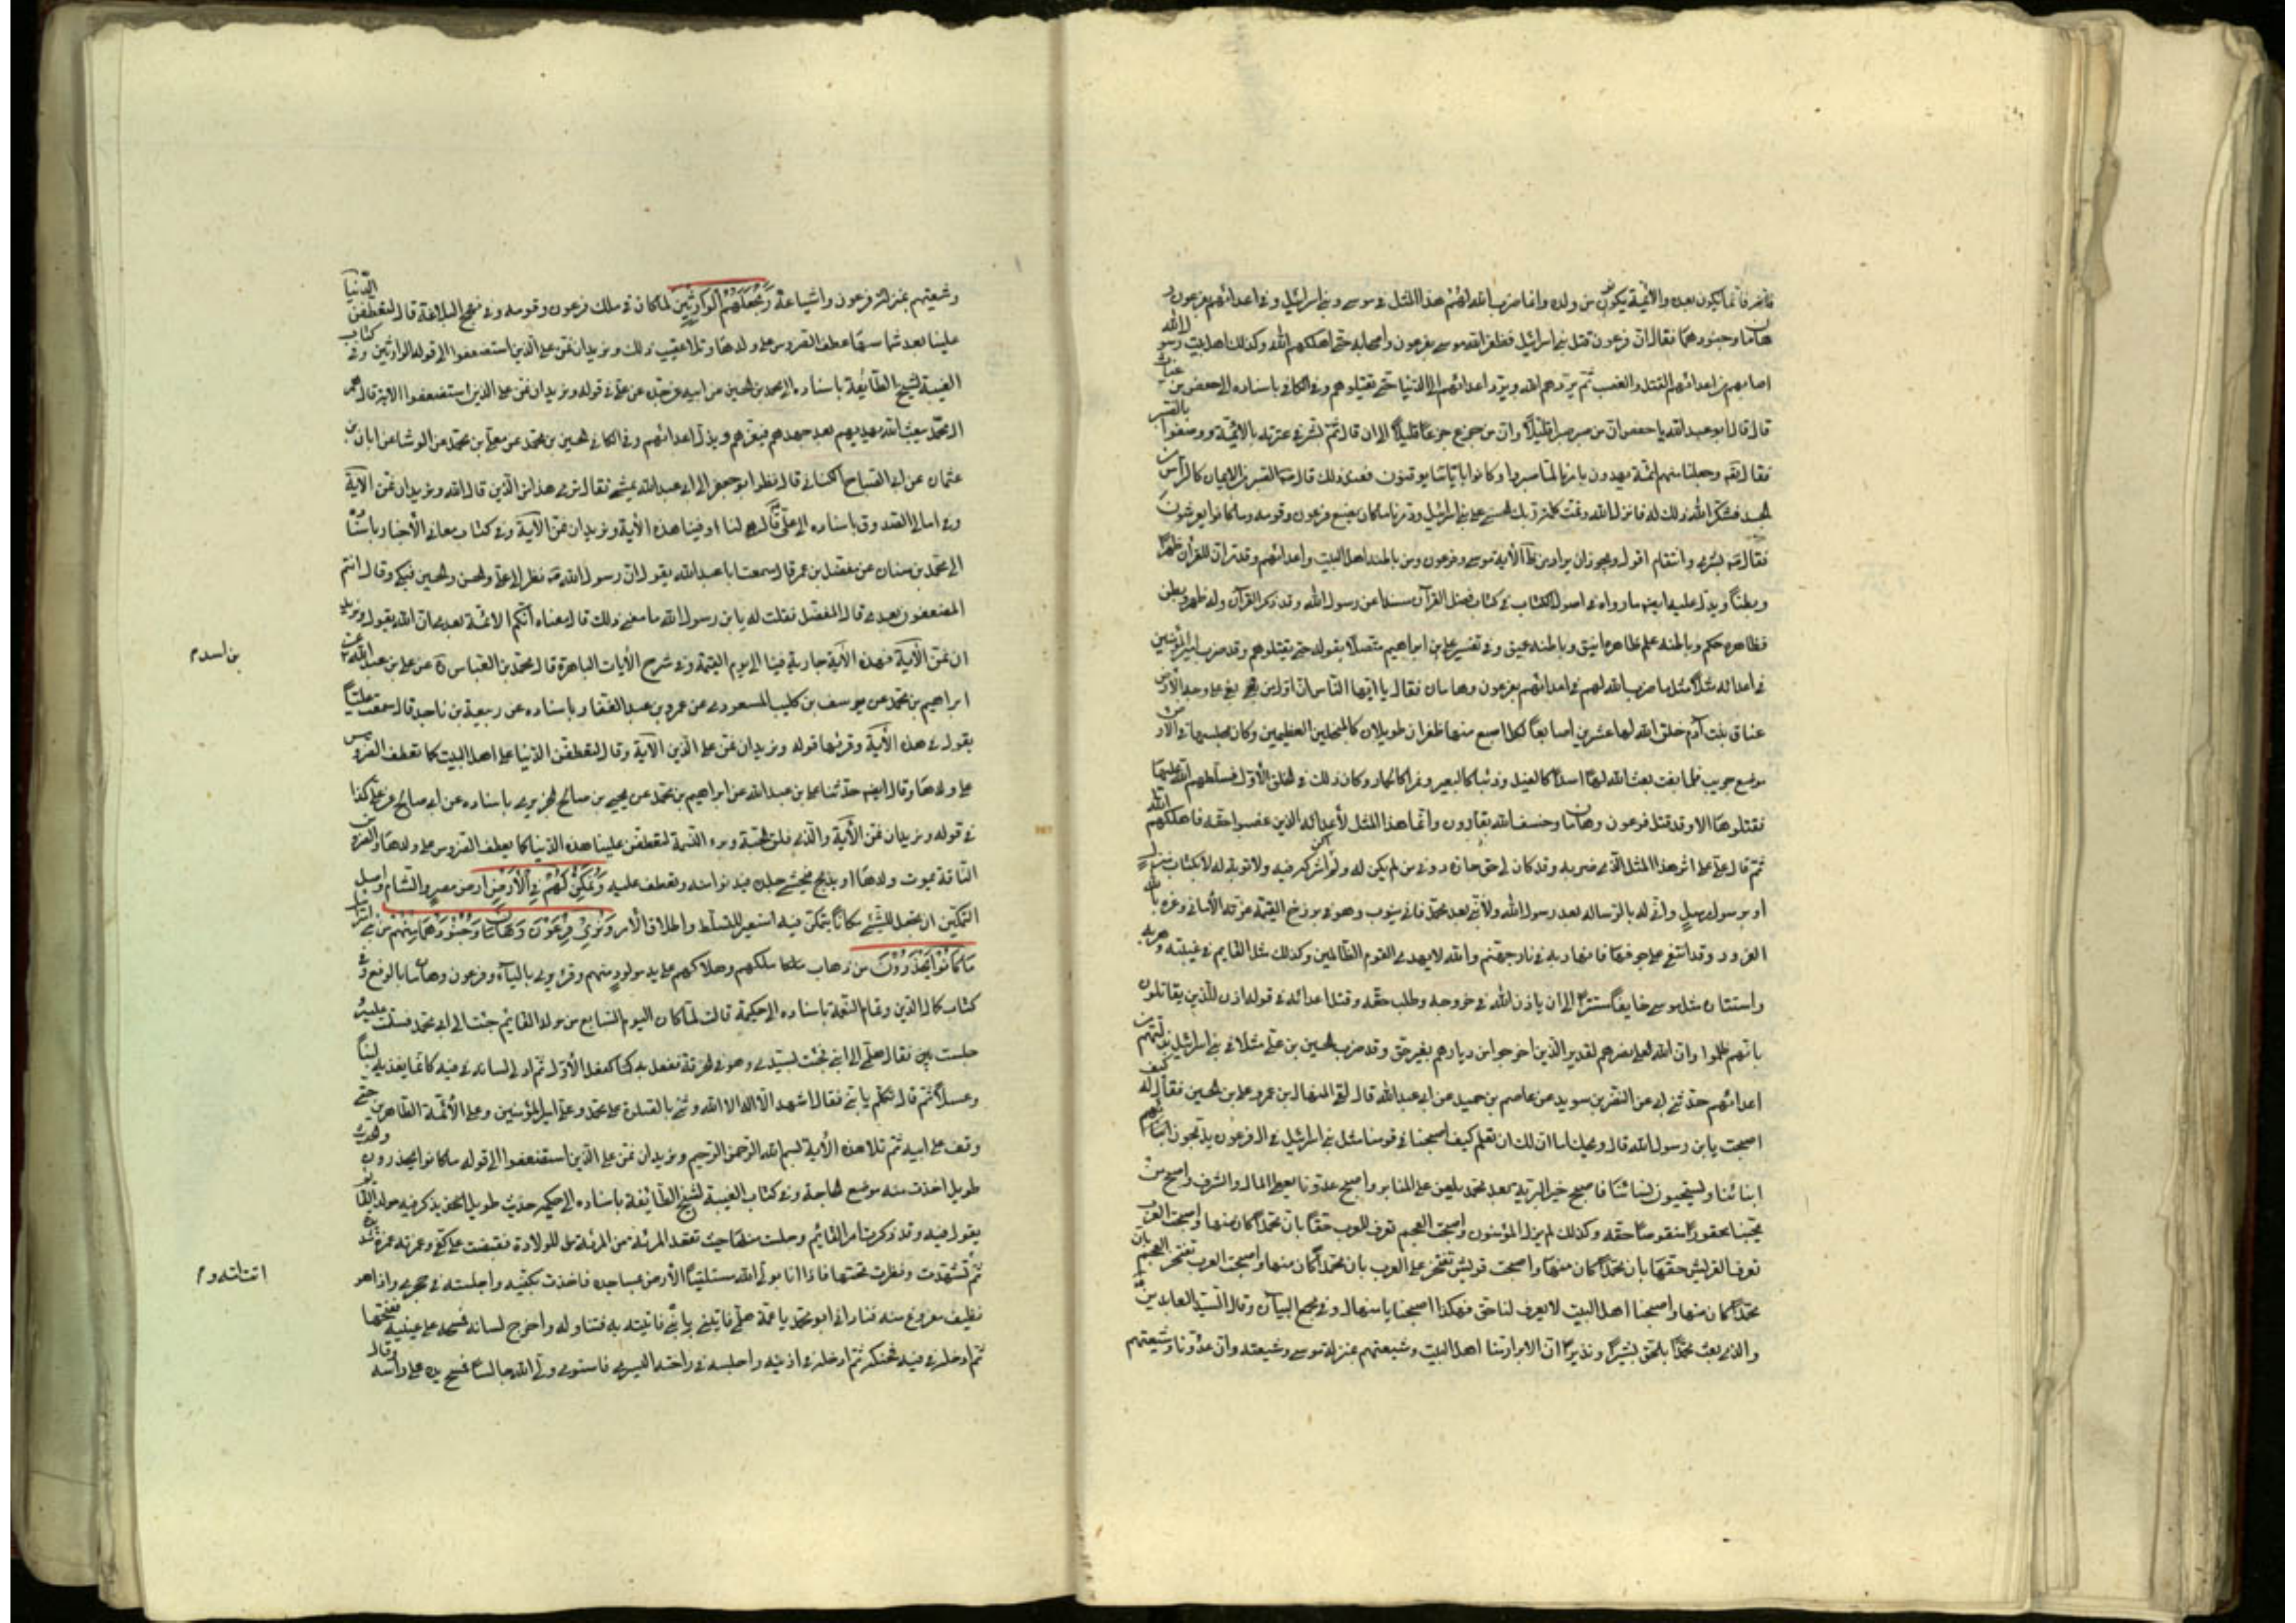 فاخبر فانما يكون بعده والائمة يكون من ولده وانما ضرب الله لهم هذا المثل في موسى وبني اسرائيل وفي اعدائهم بفرعون و
هامان وجنودهما فقال ان فرعون قتل بني اسرائيل فظفر الله موسى بفرعون واصحابه حتى اهلكهم الله وكذلك اهل بيت رسول الله
اصابهم من اعدائهم القتل والغصب ثم يردهم الله ويرد اعدائهم الى الدنيا حتى يقتلوهم وفي الكافي باسناده الى حفص بن غياث
قال قال ابو عبد الله يا حفص ان من صبر صبر قليلاً وان من جزع جزع قليلاً الى ان قال ثم بشر في عترته بالائمة ووصفوا بالصبر
فقال وجعلنا منهم ائمة يهدون بامرنا لما صبروا وكانوا باياتنا يوقنون فعند ذلك قال الصبر من الايمان كالرأس من
الجسد فشكر الله ذلك له فانزل الله وتمت كلمة ربك الحسنى على بني اسرائيل ودمرنا ما كان يصنع فرعون وقومه وما كانوا يعرشون
فقال بشرى وانتقام اقول ويجوز ان يراد من الآية موسى وفرعون ومن باطنه اهل البيت واعدائهم وقد تر ان للقرآن ظهراً
وبطناً ويدل عليه ايض ما رواه في اصول الكتاب في كتاب فضل القرآن مسنداً عن رسول الله وقد ذكر القرآن وله ظهر وبطن
فظاهره حكم وباطنه علم ظاهره انيق وباطنه عميق وفي تفسير علي بن ابراهيم متصلاً بقوله حتى يقتلوهم وقد ضرب امير المؤمنين
في اعدائه مثلاً مثل ما ضرب الله لهم في اعدائهم بفرعون وهامان فقال يا ايها الناس ان اول من بغى على وجه الارض
عناق بنت آدم خلق الله لها عشرين اصابعاً لكل اصبع منها ظفران طويلان كالمنجلين العظيمين وكان مجلسها في الارض
موضع جريب فلما بغت بعث الله لها اسداً كالفيل وذئبا كالبعير ونسراً كالحمار وكان ذلك في الخلق الاول فسلطهم الله عليها
فقتلوها الا وقد قتل فرعون وهامان وخسف الله بقارون وانما هذا المثل لأعدائه الذين غصبوا حقه فاهلكهم الله
ثم قال علي على اثر هذا المثل الذي ضربه وقد كان لي حق حازه دوني من لم يكن له ولم اكن اشركه فيه ولا توبة له الا بكتاب منزل
او برسول مرسل وانى له بالرسالة بعد رسول الله ولا نبي بعد محمد فانى يتوب وهو في برزخ القيمة غرته الأماني وغره بالله
الغرور وقد اشفى على جرف هار فانهار به في نار جهنم والله لا يهدي القوم الظالمين وكذلك مثل القايم في غيبته وهربه
واستتاره مثل موسى خايفاً مستتراً الى ان ياذن الله في خروجه وطلب حقه وقتل اعدائه في قوله اذن للذين يقاتلون
بانهم ظلموا وان الله على نصرهم لقدير الذين اخرجوا من ديارهم بغير حق وقد ضرب الحسين بن علي مثلاً في بني اسرائيل بذلتهم من
اعدائهم حدثني ابي عن النضر بن سويد عن عاصم بن حميد عن ابي عبد الله قال لقي المنهال بن عمرو علي بن الحسين فقال له كيف
اصبحت يابن رسول الله قال ويحك اما ان لك ان تعلم كيف اصبحنا في قومنا مثل بني اسرائيل في ال فرعون يذبحون ابنائهم
ابنائنا ويستحيون نسائنا فاصبح خير البرية بعد محمد يلعن على المنابر واصبح عدونا يعطى المال والشرف واصبح من
يحبنا محقوراً منقوصاً حقه وكذلك لم يزل المؤمنون واصبحت العجم تعرف للعرب حقها بان محمداً كان منها واصبحت العرب
تعرف لقريش حقها بان محمداً كان منها واصبحت قريش تفتخر على العرب بان محمداً كان منها واصبحت العرب تفتخر العجم بان
محمداً كان منها واصبحنا اهل البيت لا يعرف لنا حق فهكذا اصبحنا يا منهال وفي مجمع البيان وقال السيد العابدين
والذي بعث محمداً بالحق بشيراً ونذيراً ان الابرار منا اهل البيت وشيعتهم بمنزلة موسى وشيعته وان عدونا وشيعتهم
وشيعتهم بمنزلة فرعون واشياعه وَنَجْعَلَهُمُ الْوَارِثِينَ لما كان في ملك فرعون وقومه وفي نهج البلاغة قال لتعطفن الدنيا
علينا بعد شماسها عطف الضروس على ولدها وتلا عقيب ذلك ونريد ان نمن على الذين استضعفوا الى قوله الوارثين وفي كتاب
الغيبة لشيخ الطائفة باسناده الى محمد بن الحسين عن ابيه عن جده عن علي في قوله ونريد ان نمن على الذين استضعفوا الاية قال هم
ال محمد يبعث الله مهديهم بعد جهدهم فيعزهم ويذل اعدائهم وفي الكافي الحسين بن محمد عن معلى بن محمد عن الوشا عن ابان بن
عثمان عن ابي الصباح الكناني قال نظر ابو جعفر الى ابي عبد الله يمشي فقال ترى هذا من الذين قال الله ونريد ان نمن الآية
وفي امالي الصدوق باسناده الى علي قال هي لنا او فينا هذه الأية ونريد ان نمن الآية وفي كتاب معاني الأخبار باسناده
الى محمد بن سنان عن مفضل بن عمر قال سمعت ابا عبد الله يقول ان رسول الله نظر الى علي والحسن والحسين فبكى وقال انتم
المضعفون بعدي قال المفضل فقلت له يابن رسول الله ما معنى ذلك قال معناه انكم الائمة بعدي ان الله يقول ونريد
ان نمن الآية فهذه الآية جارية فينا الى يوم القيمة وفي شرح الأيات الباهرة قال محمد بن العباس عن علي بن عبد الله عن
بن اسد م
ابراهيم بن محمد عن يوسف بن كليب المسعودي عن عمرو بن عبد الغفار باسناده عن ربيعة بن ناجد قال سمعت علياً
يقول في هذه الأية وقرئها قوله ونريد ان نمن على الذين الآية وقال لتعطفن الدنيا على اهل البيت كما تعطف الضروس
على ولدها وقال ايض حدثنا علي بن عبد الله عن ابراهيم بن محمد عن يحيى بن صالح الجزيري باسناده عن ابي صالح عن علي كذا
في قوله ونريد ان نمن الأية والذي فلق الحبة وبرء النسمة لتعطفن علينا هذه الدنيا كما تعطف الضروس على ولدها والضروس
الناقة يموت ولدها او يذبح فيحشى جلده فيدنوا منه وتعطف عليه وَنُمَكِّنَ لَهُمْ فِي الْأَرْضِ ارض مصر والشام واصل
التمكين ان يجعل للشئ مكاناً يتمكن فيه استعير للتسلط واطلاق الأمر وَنُرِيَ فِرْعَوْنَ وَهَامَانَ وَجُنُودَهُمَا مِنْهُمْ من بني اسرائيل
مَا كَانُوا يَحْذَرُونَ من ذهاب ملكهم وهلاكهم على يد مولود منهم وقرئ يرى بالياء وفرعون وهامان بالرفع وفي
كتاب كمال الدين وتمام النعمة باسناده الى حكيمة قالت لما كان اليوم السابع من مولد القايم جئت الى ابي محمد فسلمت عليه
جلست فقال هلمي الي ابني فجئت بسيدي وهو في الخرقة ففعل به كفعل الأول ثم ادلى لسانه في فيه كانما يغذيه لبناً
وعسلاً ثم قال تكلم يا بني فقال اشهد ان لا اله الا الله وثنى بالصلوة على محمد وعلى امير المؤمنين وعلى الأئمة الطاهرين حتى
وقف على ابيه ثم تلا هذه الأية بسم الله الرحمن الرحيم ونريد ان نمن على الذين استضعفوا الى قوله ما كانوا يحذرون والحديث
طويل اخذت منه موضع الحاجة وفي كتاب الغيبة لشيخ الطائفة باسناده الى حكيمة حديث طويل تذكر فيه مولد القايم
يقول فيه وقد ذكرت امر القايم وجلست منها حيث تقعد المرئة من المرئة للولادة فقبضت على كفي وغمزته غمزة شديدة
ثم تشهدت ونظرت تحتها فاذا انا بولي الله متلقياً الأرض بمساجده فاخذت بكتفيه واجلسته في حجري واذا هو
نظيف مفروغ منه فناداني ابو محمد يا عمة هلمي فاتيني بابني فاتيته به فتناوله واخرج لسانه فمسحه على عينيه ففتحها
ثم ادخله في فيه فحنكه ثم ادخله في اذنيه واجلسه في راحته اليسرى فاستوى ولي الله جالساً فمسح يده على راسه وقال